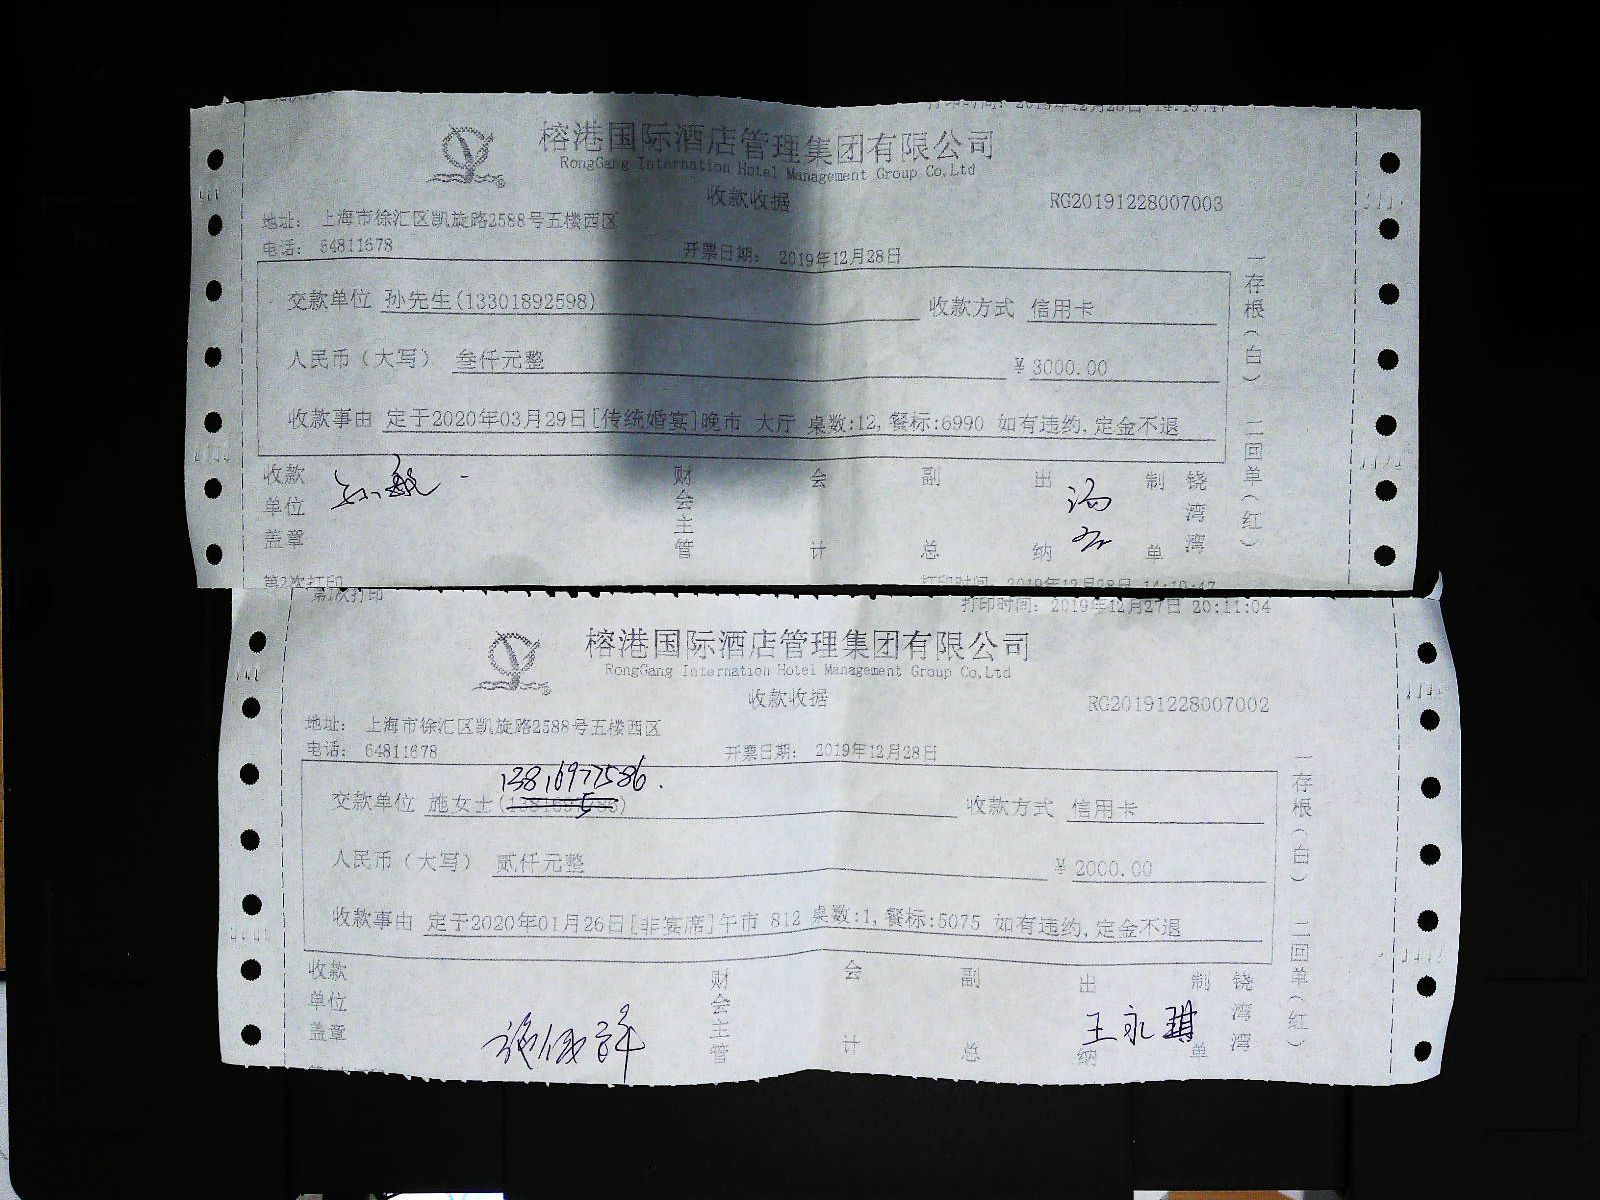 打印时间: 2019年12月28日 14:19:47
榕港国际酒店管理集团有限公司
RongGang Internation Hotel Management Group Co,Ltd
收款收据
RG20191228007003
地址: 上海市徐汇区凯旋路2588号五楼西区
电话: 64811678
开票日期: 2019年12月28日
交款单位 孙先生(13301892598)
收款方式 信用卡
人民币（大写） 叁仟元整
¥ 3000.00
收款事由 定于2020年03月29日[传统婚宴]晚市 大厅 桌数:12,餐标:6990 如有违约,定金不退
一存根(白) 二回单(红)
收款单位盖章
财会主管
会计
副总
出纳
制单
饶湾湾
第2次打印
打印时间: 2019年12月28日 14:19:47
第1次打印
打印时间: 2019年12月27日 20:11:04
榕港国际酒店管理集团有限公司
RongGang Internation Hotel Management Group Co,Ltd
收款收据
RG20191228007002
地址: 上海市徐汇区凯旋路2588号五楼西区
电话: 64811678
开票日期: 2019年12月28日
13816977586.
交款单位 施女士
收款方式 信用卡
人民币（大写） 贰仟元整
¥ 2000.00
收款事由 定于2020年01月26日[非宴席]午市 812 桌数:1,餐标:5075 如有违约,定金不退
一存根(白) 二回单(红)
收款单位盖章
财会主管
会计
副总
出纳
王永琪
制单
饶湾湾